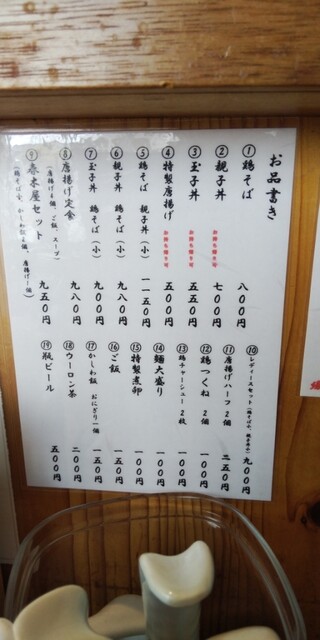 お品書き
①鶏そば 八〇〇円
②親子丼 七〇〇円
お持ち帰り可
③玉子丼 五五〇円
お持ち帰り可
④特製唐揚げ 五五〇円
お持ち帰り可
⑤鶏そば 親子丼(小) 一一五〇円
⑥親子丼 鶏そば(小) 九八〇円
⑦玉子丼 鶏そば(小) 九〇〇円
⑧唐揚げ定食 九八〇円
(唐揚げ4個、ご飯、スープ)
⑨春木屋セット 九五〇円
⑩レディースセット 九〇〇円
⑪唐揚げハーフ 2個 二五〇円
⑫鶏つくね 2個 一〇〇円
⑬鶏チャーシュー 2枚 一〇〇円
⑭麺大盛り 一〇〇円
⑮特製煮卵 一〇〇円
⑯ご飯 一五〇円
⑰かしわ飯 おにぎり一個 一五〇円
⑱ウーロン茶 二〇〇円
⑲瓶ビール 五〇〇円